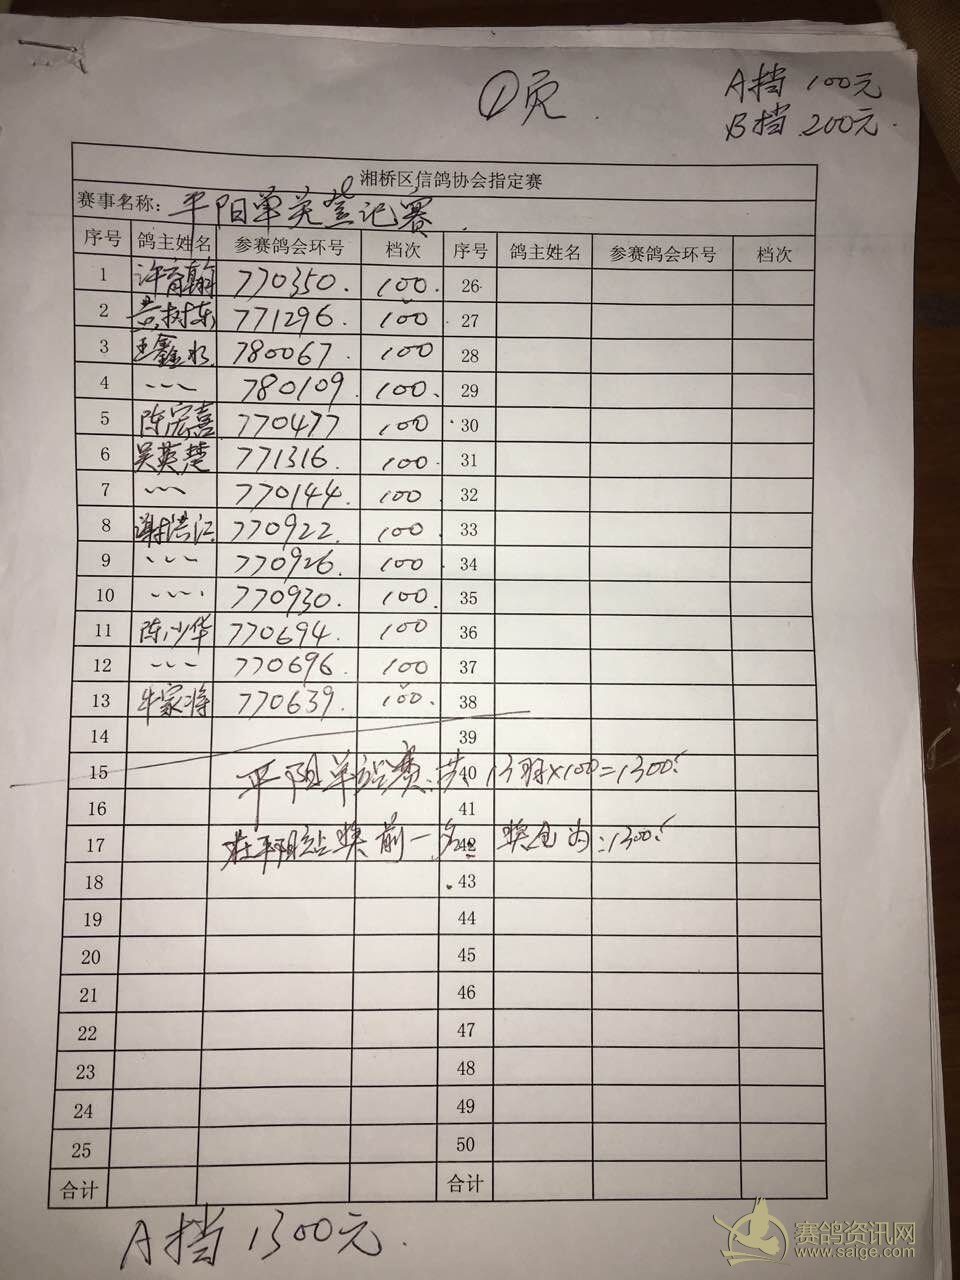 ①页.
A挡 100元
B挡 200元.
湘桥区信鸽协会指定赛
赛事名称: 平阳单关登记赛.
序号 鸽主姓名 参赛鸽会环号 档次 序号 鸽主姓名 参赛鸽会环号 档次
1 许育翰 770350. 100. 26
2 黄树东 771296. 100 27
3 王鑫水 780067. 100 28
4 〃 780109. 100. 29
5 陈宏喜 770477 100 30
6 吴英楚 771316. 100. 31
7 〃 770144. 100 32
8 谢浩江 770922. 100 33
9 〃 770926. 100 34
10 〃 770930. 100. 35
11 陈少华 770694. 100 36
12 〃 770696. 100 37
13 牛家将 770639. 100. 38
14 39
15 平阳单站赛: 共 13羽×100=1300 40
16 41
17 平阳站奖前一名 奖金为:1300 42
18 43
19 44
20 45
21 46
22 47
23 48
24 49
25 50
合计 合计
A挡 1300元.
赛鸽资讯网
www.saige.com